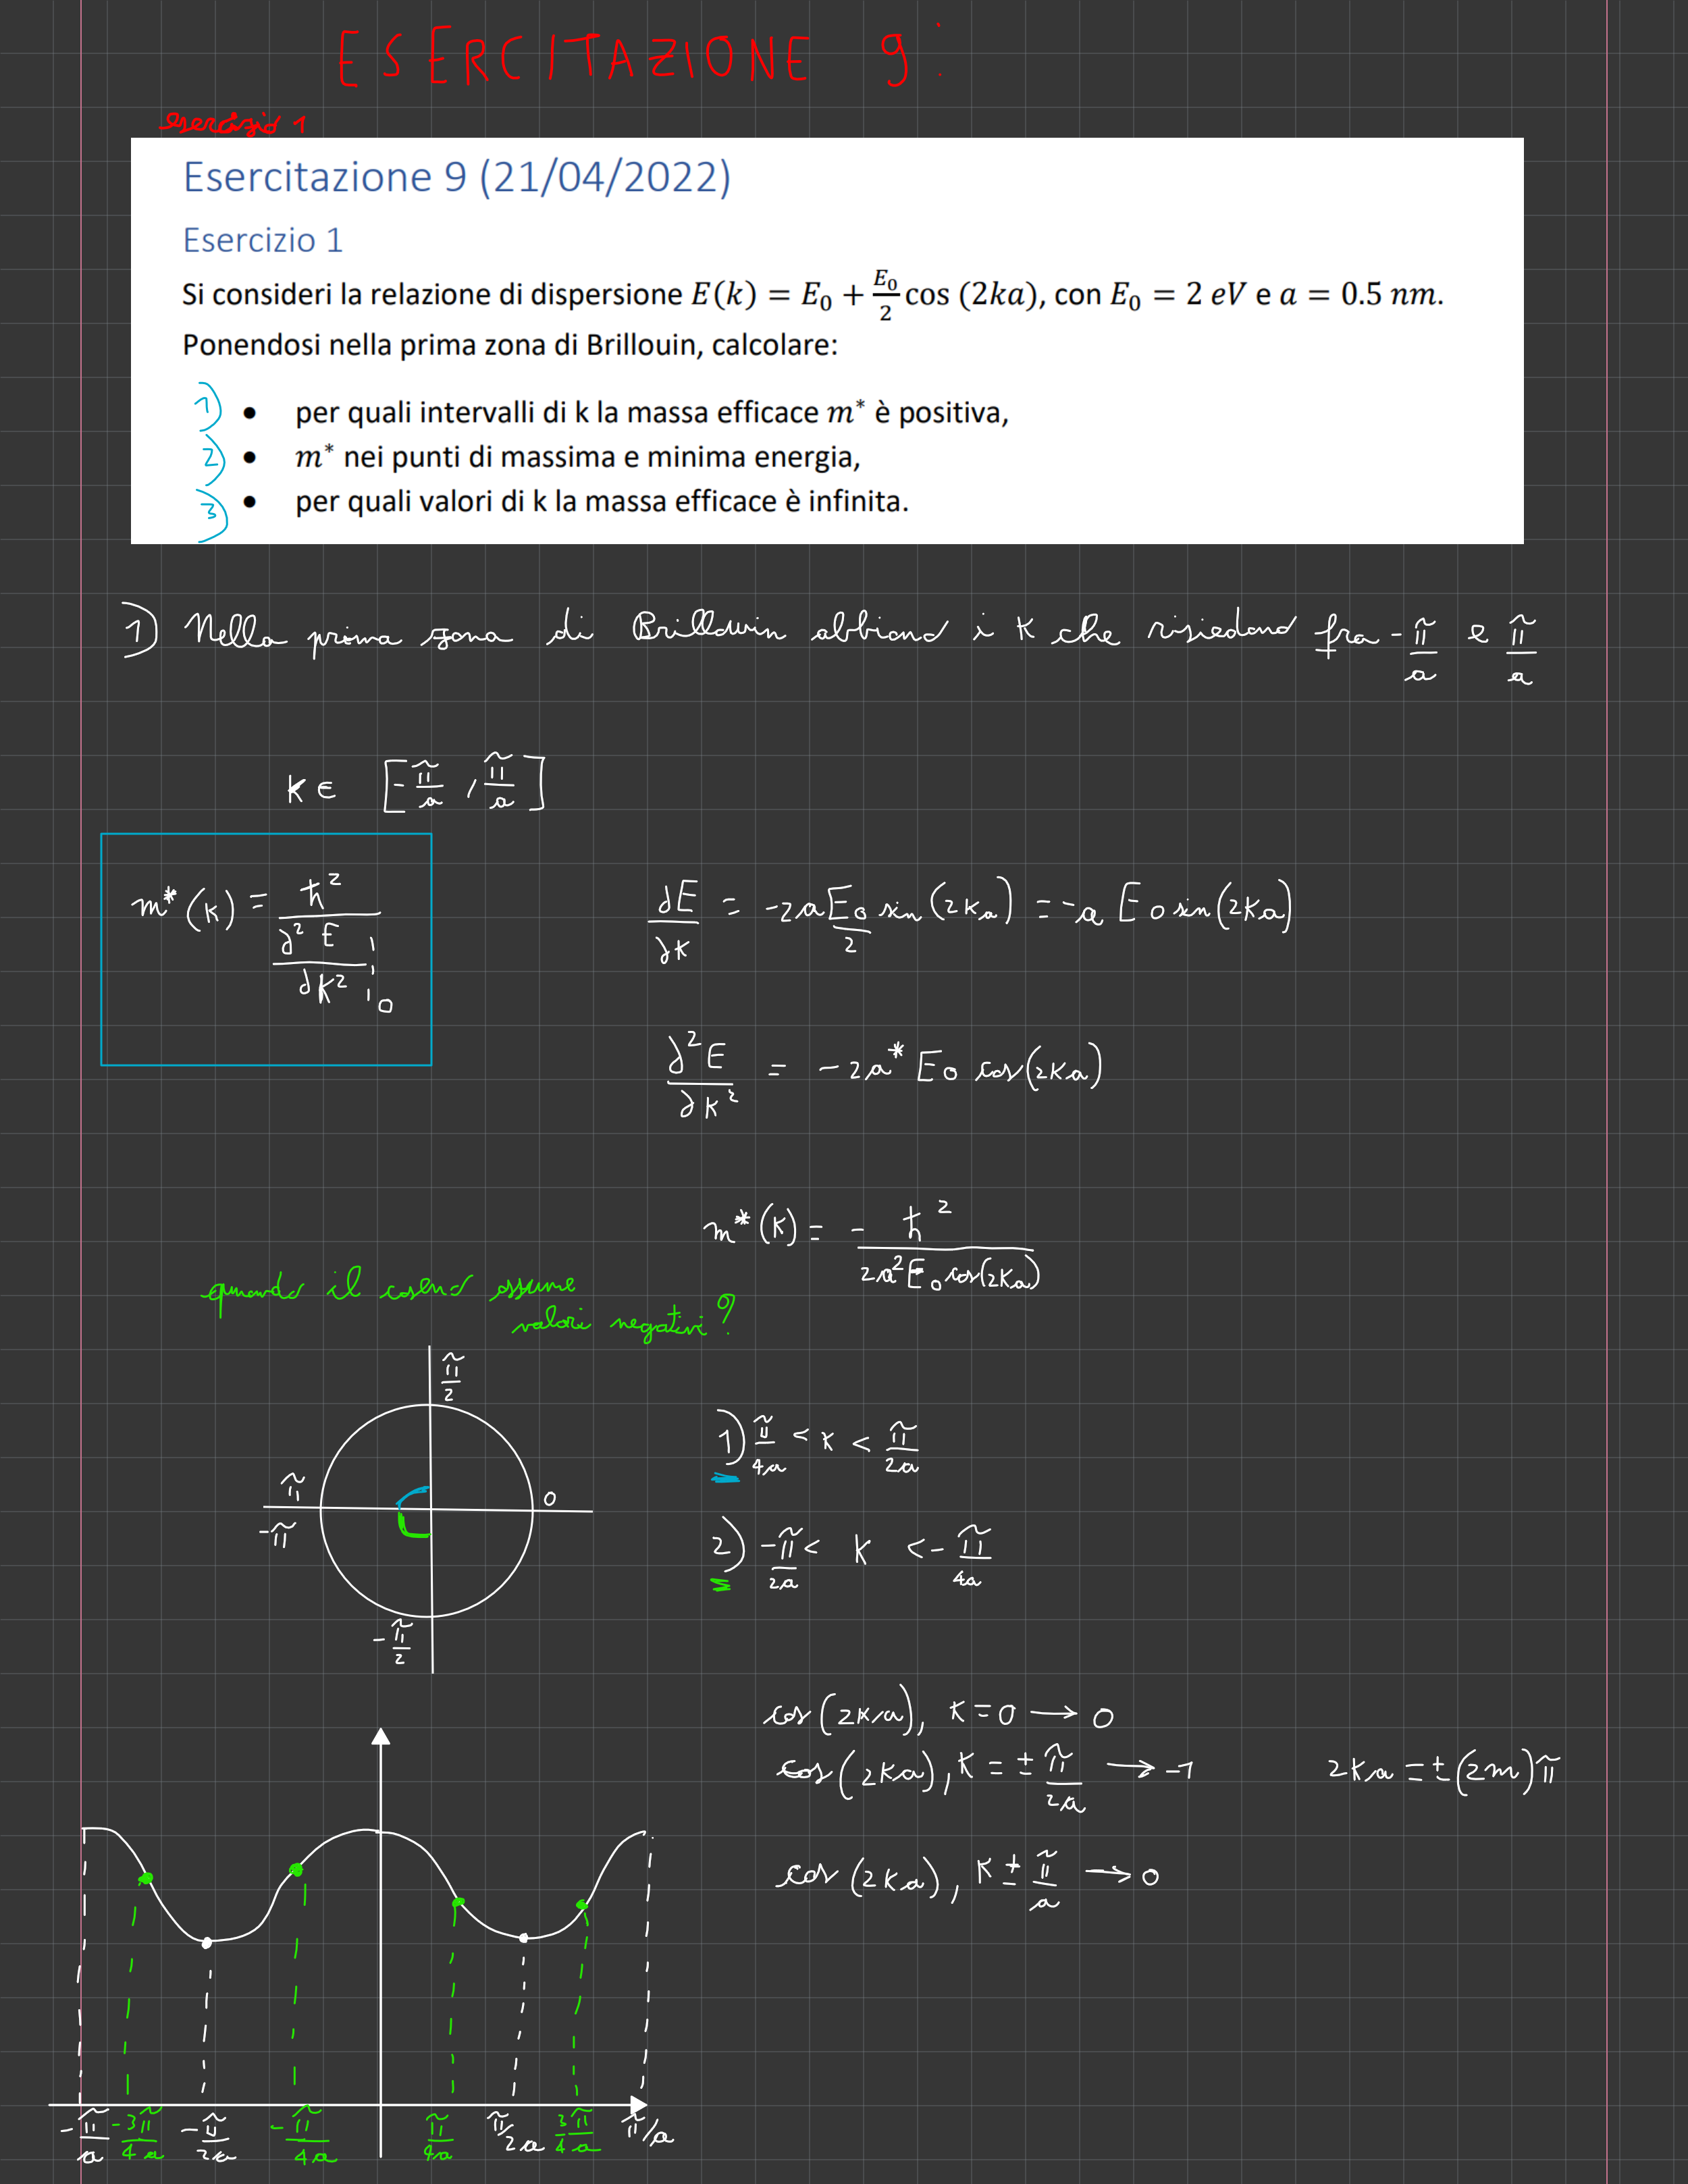 ESERCITAZIONE 9:
esercizio 1
Esercitazione 9 (21/04/2022)
Esercizio 1
Si consideri la relazione di dispersione E(k) = E₀ + E₀/2 cos (2ka), con E₀ = 2 eV e a = 0.5 nm.
Ponendosi nella prima zona di Brillouin, calcolare:
1) • per quali intervalli di k la massa efficace m* è positiva,
2) • m* nei punti di massima e minima energia,
3) • per quali valori di k la massa efficace è infinita.
1) Nella prima zona di Brillouin abbiamo i K che risiedono fra -π/a e π/a
K ∈ [-π/a , π/a]
m*(K) = ħ² / ∂²E/∂K² |₀
∂E/∂K = -2a E₀/2 sin(2Ka) = -a E₀ sin(2Ka)
∂²E/∂K² = -2a* E₀ cos(2Ka)
m*(K) = - ħ² / 2a²E₀ cos(2Ka)
quando il coseno assume
valori negativi?
π/2
π
-π
0
-π/2
1) π/4a < K < π/2a
2) -π/2a < K < -π/4a
cos(2Ka), K=0 → 0
cos(2Ka), K = ± π/2a → -1
2Ka = ±(2m)π
cos(2Ka), K ± π/a → 0
-π/a -3π/4a -π/2a -π/4a π/4a π/2a 3/4 π/a π/a